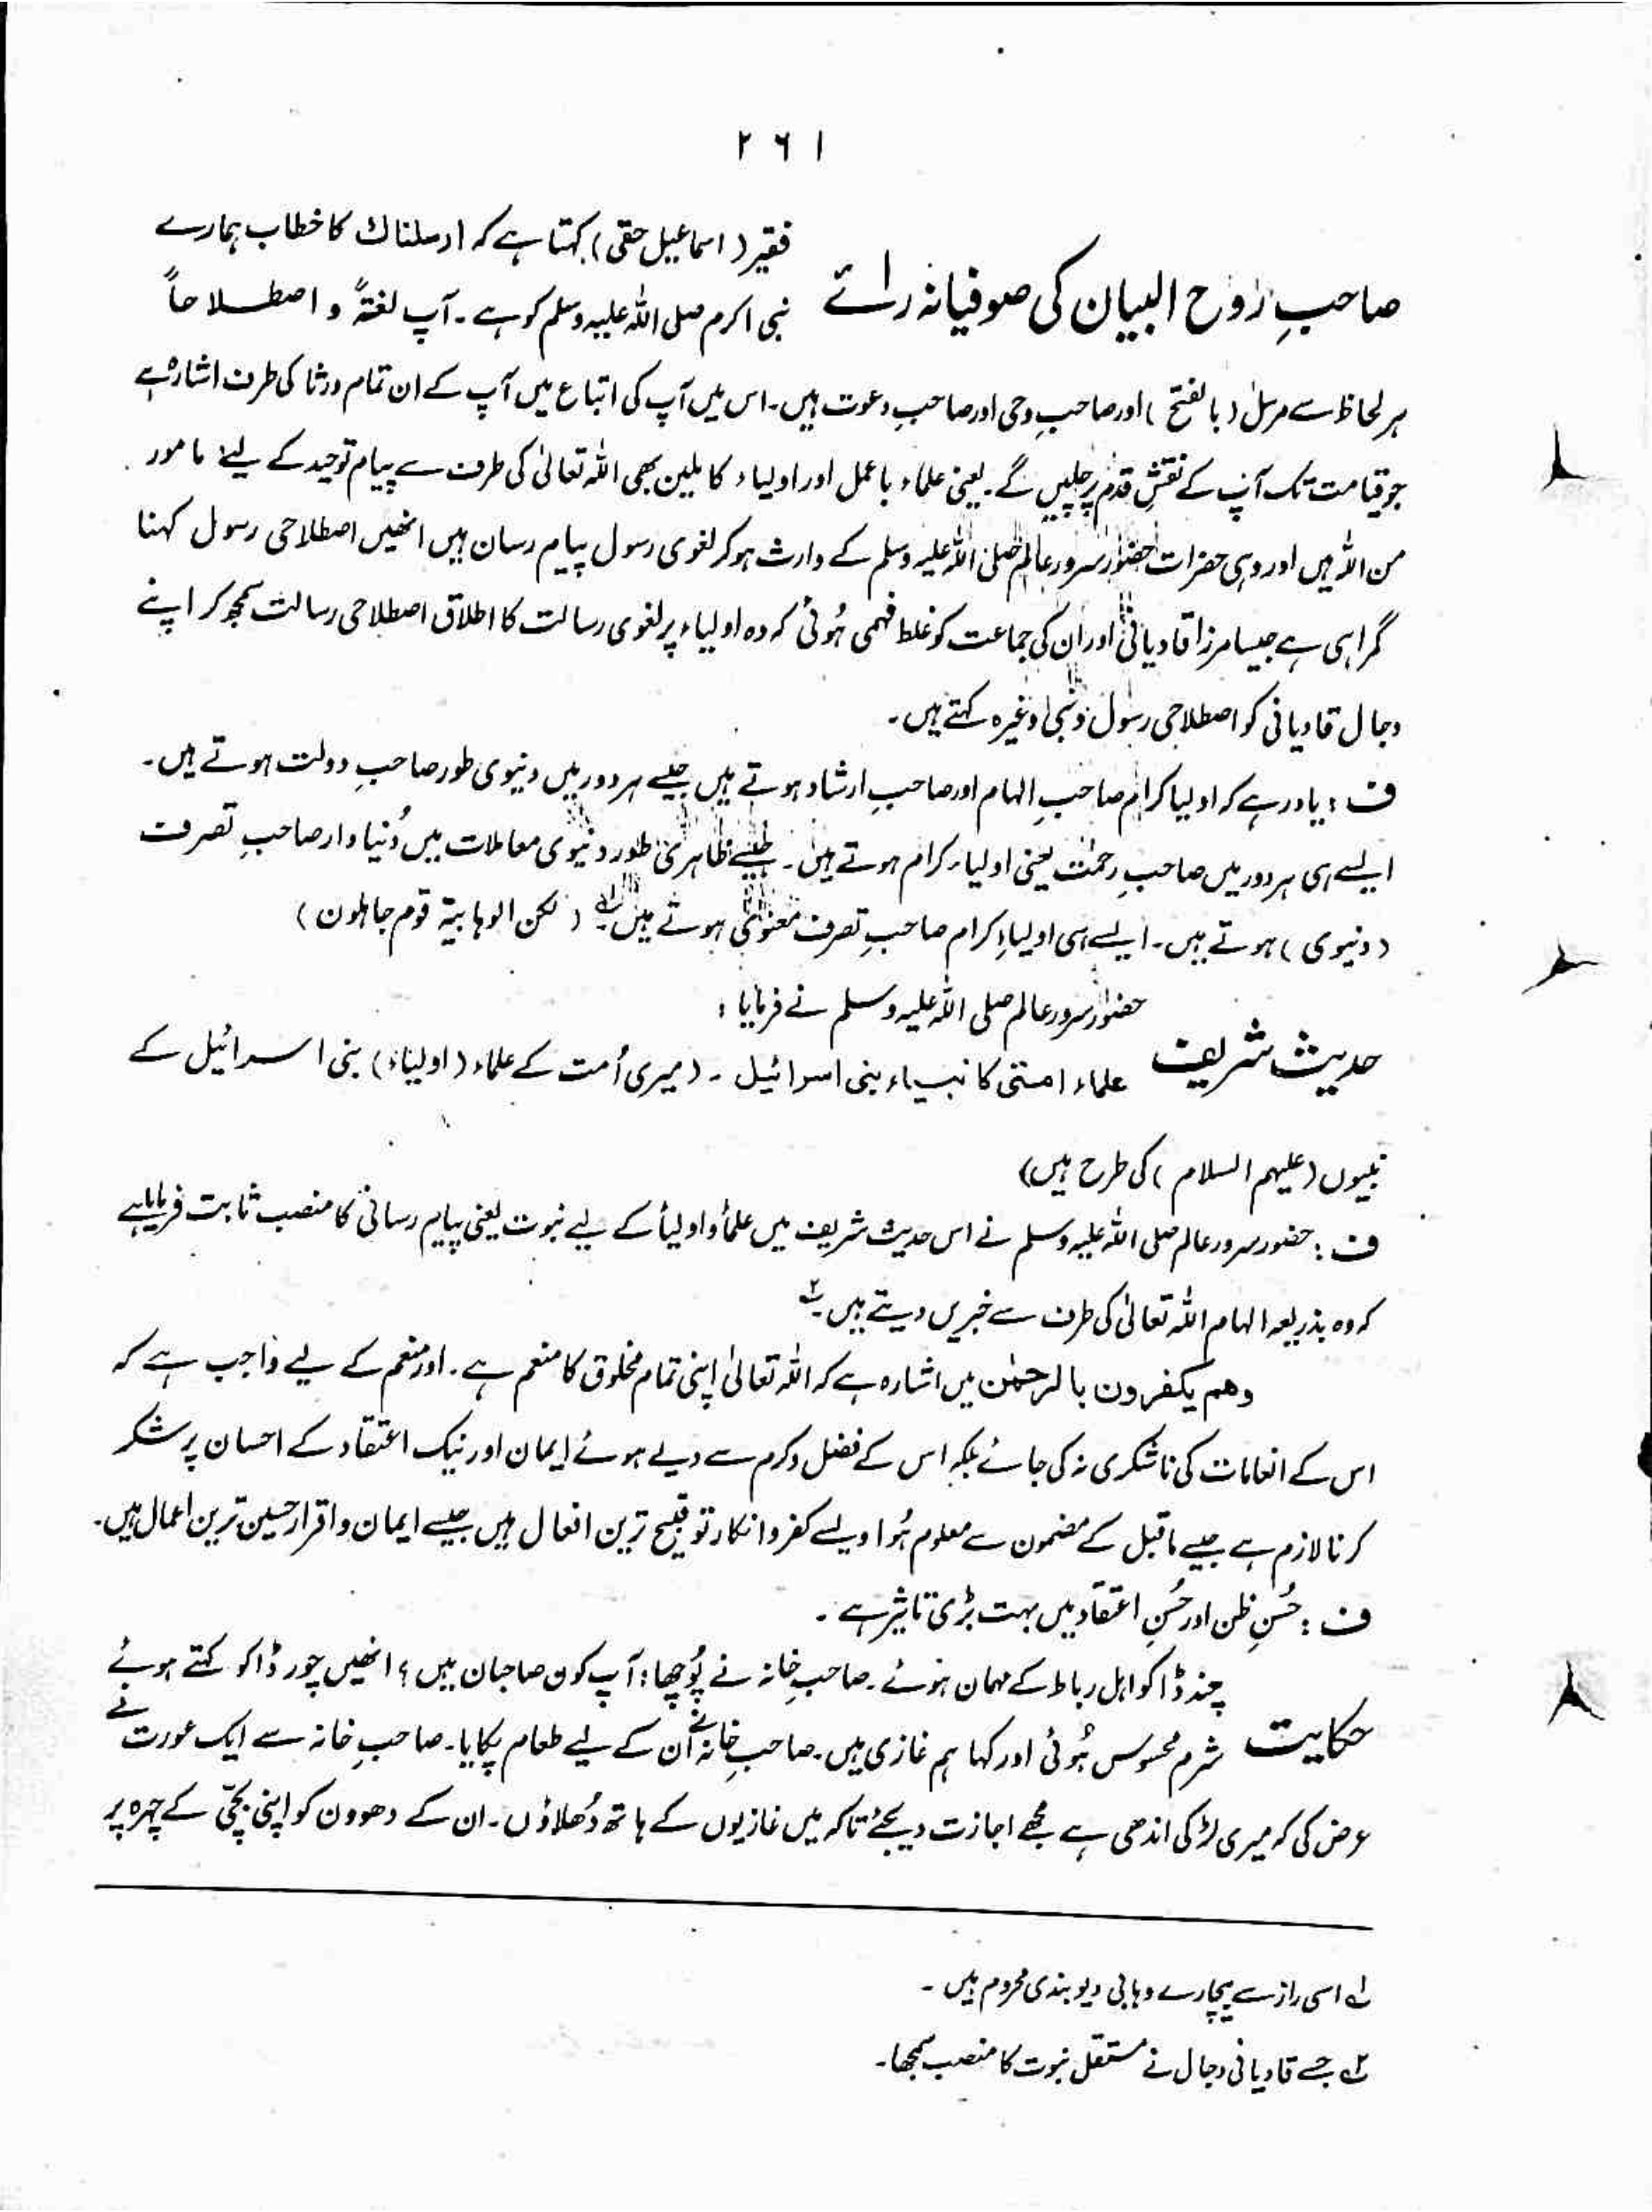 ۲۶۱
صاحبِ رُوح البیان کی صوفیانہ رائے
فقیر (اسماعیل حقی) کہتا ہے کہ ارسلناك کا خطاب ہمارے
نبی اکرم صلی اللہ علیہ وسلم کو ہے۔ آپ لغۃً و اصطلاحاً
ہر لحاظ سے مرسَل (بالفتح) اور صاحبِ وحی اور صاحبِ دعوت ہیں۔ اس میں آپ کی اتباع میں آپ کے ان تمام ورثا کی طرف اشارہ ہے
جو قیامت تک آپ کے نقشِ قدم پر چلیں گے۔ یعنی علماء باعمل اور اولیاء کاملین بھی اللہ تعالیٰ کی طرف سے پیام توحید کے لیے مامور
من اللہ ہیں اور وہی حضرات حضور سرور عالم صلی اللہ علیہ وسلم کے وارث ہو کر لغوی رسول پیام رساں ہیں انھیں اصطلاحی رسول کہنا
گمراہی ہے جیسا مرزا قادیانی اور ان کی جماعت کو غلط فہمی ہُوئی کہ وہ اولیاء پر لغوی رسالت کا اطلاق اصطلاحی رسالت سمجھ کر اپنے
دجال قادیانی کو اصطلاحی رسول و نبی وغیرہ کہتے ہیں۔
ف : یاد رہے کہ اولیا کرام صاحبِ الہام اور صاحبِ ارشاد ہوتے ہیں جیسے ہر دور میں دنیوی طور صاحبِ دولت ہوتے ہیں۔
ایسے ہی ہر دور میں صاحبِ رحمت یعنی اولیاء کرام ہوتے ہیں۔ جیسے ظاہری طور دنیوی معاملات میں دُنیا دار صاحبِ تصرف
(دنیوی) ہوتے ہیں۔ ایسے ہی اولیاءِ کرام صاحبِ تصرف معنوی ہوتے ہیں۔ لہ (لکن الوہابیۃ قوم جاہلون)
حدیث شریف
حضور سرور عالم صلی اللہ علیہ وسلم نے فرمایا :
علماء امتی کانبیاء بنی اسرائیل ۔ (میری اُمت کے علماء (اولیاء) بنی اسرائیل کے
نبیوں (علیہم السلام) کی طرح ہیں)
ف : حضور سرور عالم صلی اللہ علیہ وسلم نے اس حدیث شریف میں علماً و اولیأ کے لیے نبوت یعنی پیام رسانی کا منصب ثابت فرمایا ہے
کہ وہ بذریعہ الہام اللہ تعالیٰ کی طرف سے خبریں دیتے ہیں۔ ۲ہ
وهم یکفرون بالرحمٰن میں اشارہ ہے کہ اللہ تعالیٰ اپنی تمام مخلوق کا منعم ہے۔ اور منعم کے لیے واجب ہے کہ
اس کے انعامات کی ناشکری نہ کی جائے بلکہ اس کے فضل و کرم سے دیے ہوئے ایمان اور نیک اعتقاد کے احسان پر شکر
کرنا لازم ہے جیسے ماقبل کے مضمون سے معلوم ہُوا ویسے کفر و انکار تو قبیح ترین افعال ہیں جیسے ایمان و اقرار حسین ترین اعمال ہیں۔
ف : حُسنِ ظن اور حُسنِ اعتقاد میں بہت بڑی تاثیر ہے ۔
حکایت
چند ڈاکو اہل رباط کے مہمان ہوئے۔ صاحبِ خانہ نے پُوچھا: آپ کون صاحبان ہیں؟ انھیں چور ڈاکو کہتے ہوئے
شرم محسوس ہُوئی اور کہا ہم غازی ہیں۔ صاحبِ خانہ نے اُن کے لیے طعام پکایا۔ صاحبِ خانہ سے ایک عورت نے
عرض کی کہ میری لڑکی اندھی ہے مجھے اجازت دیجئے تاکہ میں غازیوں کے ہاتھ دُھلاؤں۔ ان کے دھوون کو اپنی بچّی کے چہرہ پر
لہ اسی راز سے بیچارے وہابی دیوبندی محروم ہیں ۔
۲ہ جسے قادیانی دجال نے مستقل نبوت کا منصب سمجھا۔